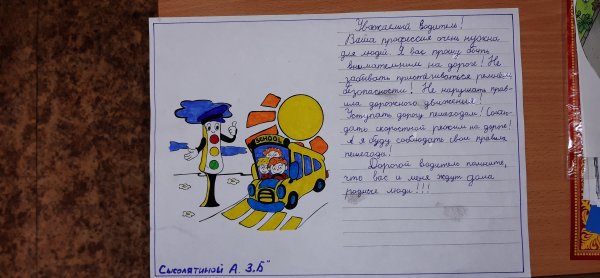 Уважаемый водитель!
Ваша профессия очень нужна
для людей. Я вас прошу быть
внимательным на дороге! Не
забывать пристёгиваться ремнём
безопасности! Не нарушать прав-
ила дорожного движения!
Уступать дорогу пешеходам! Соблю-
дать скоростной режим на дороге!
А я буду соблюдать свои правила
пешехода.
Дорогой водитель помните,
что вас и меня ждут дома
родные люди!!!
SCHOOL
Сысолятиной А. 3„Б"